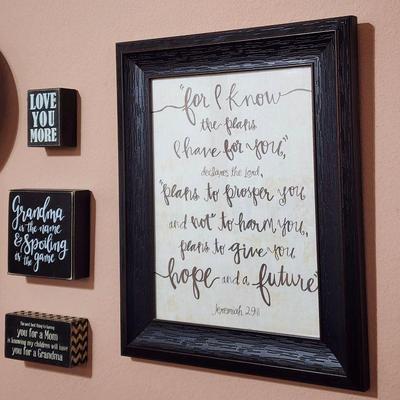 LOVE
YOU
MORE
Grandma
is the name
& Spoiling
is the game
The best thing to having
you for a Mom
is knowing my children will have
you for a Grandma
"for I know
the plans
I have for you,"
declares the Lord,
"plans to prosper you
and not to harm you,
plans to give you
hope and a future"
Jeremiah 29:11